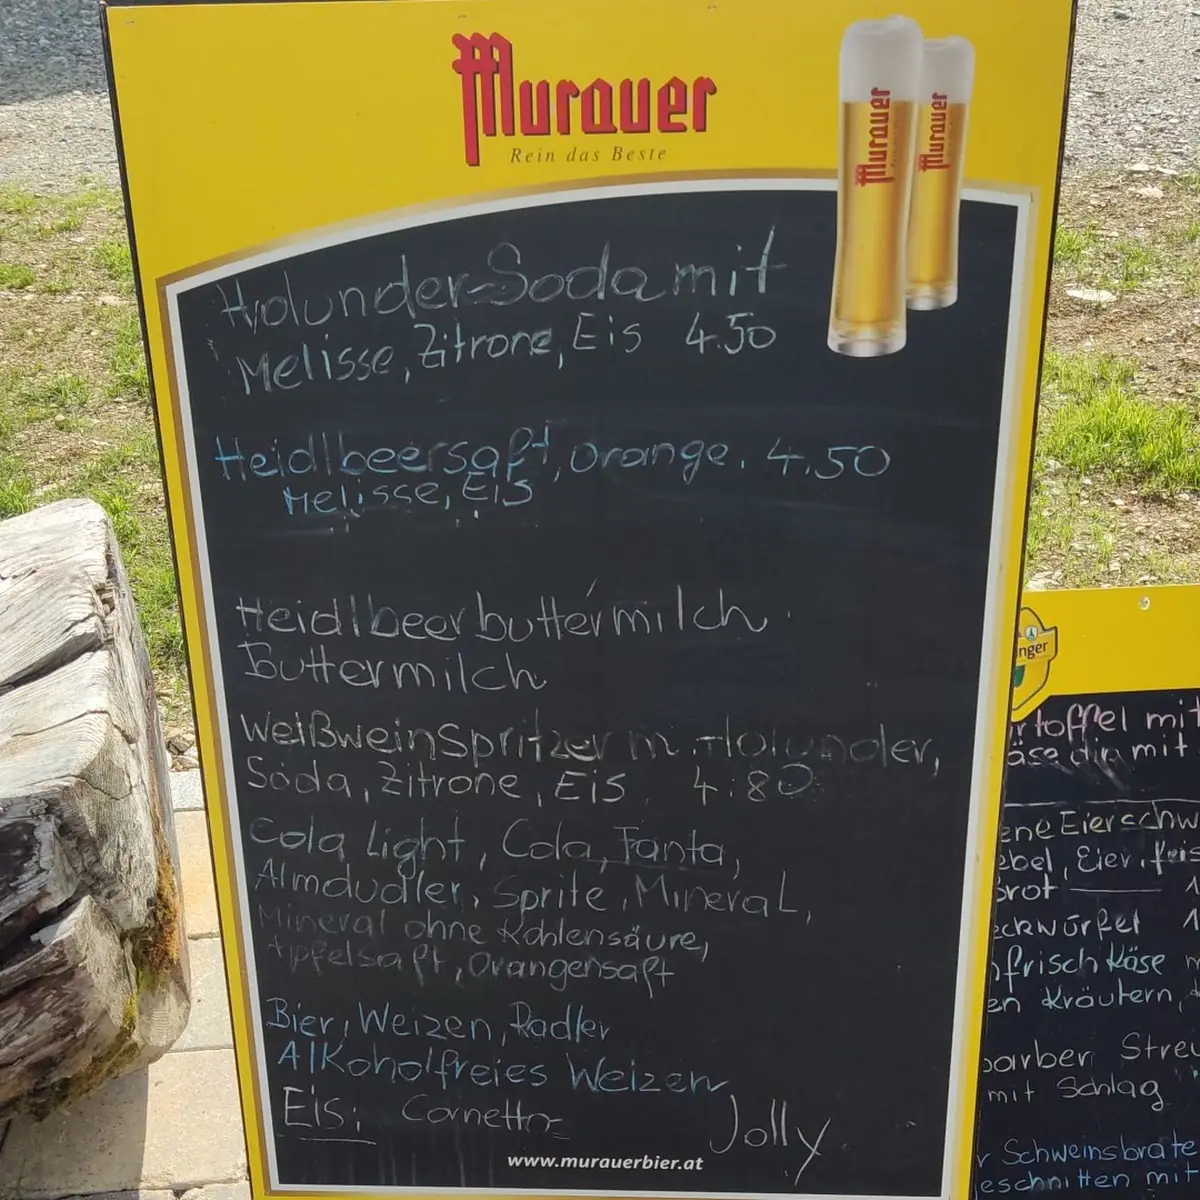 Murauer
Rein das Beste
Murauer
Murauer
Holunder-Soda mit
Melisse, Zitrone, Eis 4.50
Heidlbeersaft, Orange. 4.50
Melisse, Eis
Heidlbeerbuttermilch
Buttermilch
Weißweinspritzer m. Holunder,
Soda, Zitrone, Eis 4.80
Cola Light, Cola, Fanta,
Almdudler, Sprite, Mineral,
Mineral ohne Kohlensäure,
Apfelsaft, Orangensaft
Bier, Weizen, Radler
Alkoholfreies Weizen
Eis: Cornetto
Jolly
www.murauerbier.at
nger
rtoffel mit
äse din mit
ene Eierschw
ebel, Eier, feis
Brot
eckwürfel
frischkäse
en Kräutern,
barber Streu
mit Schlag
r Schweinsbrate
eschnitten mit